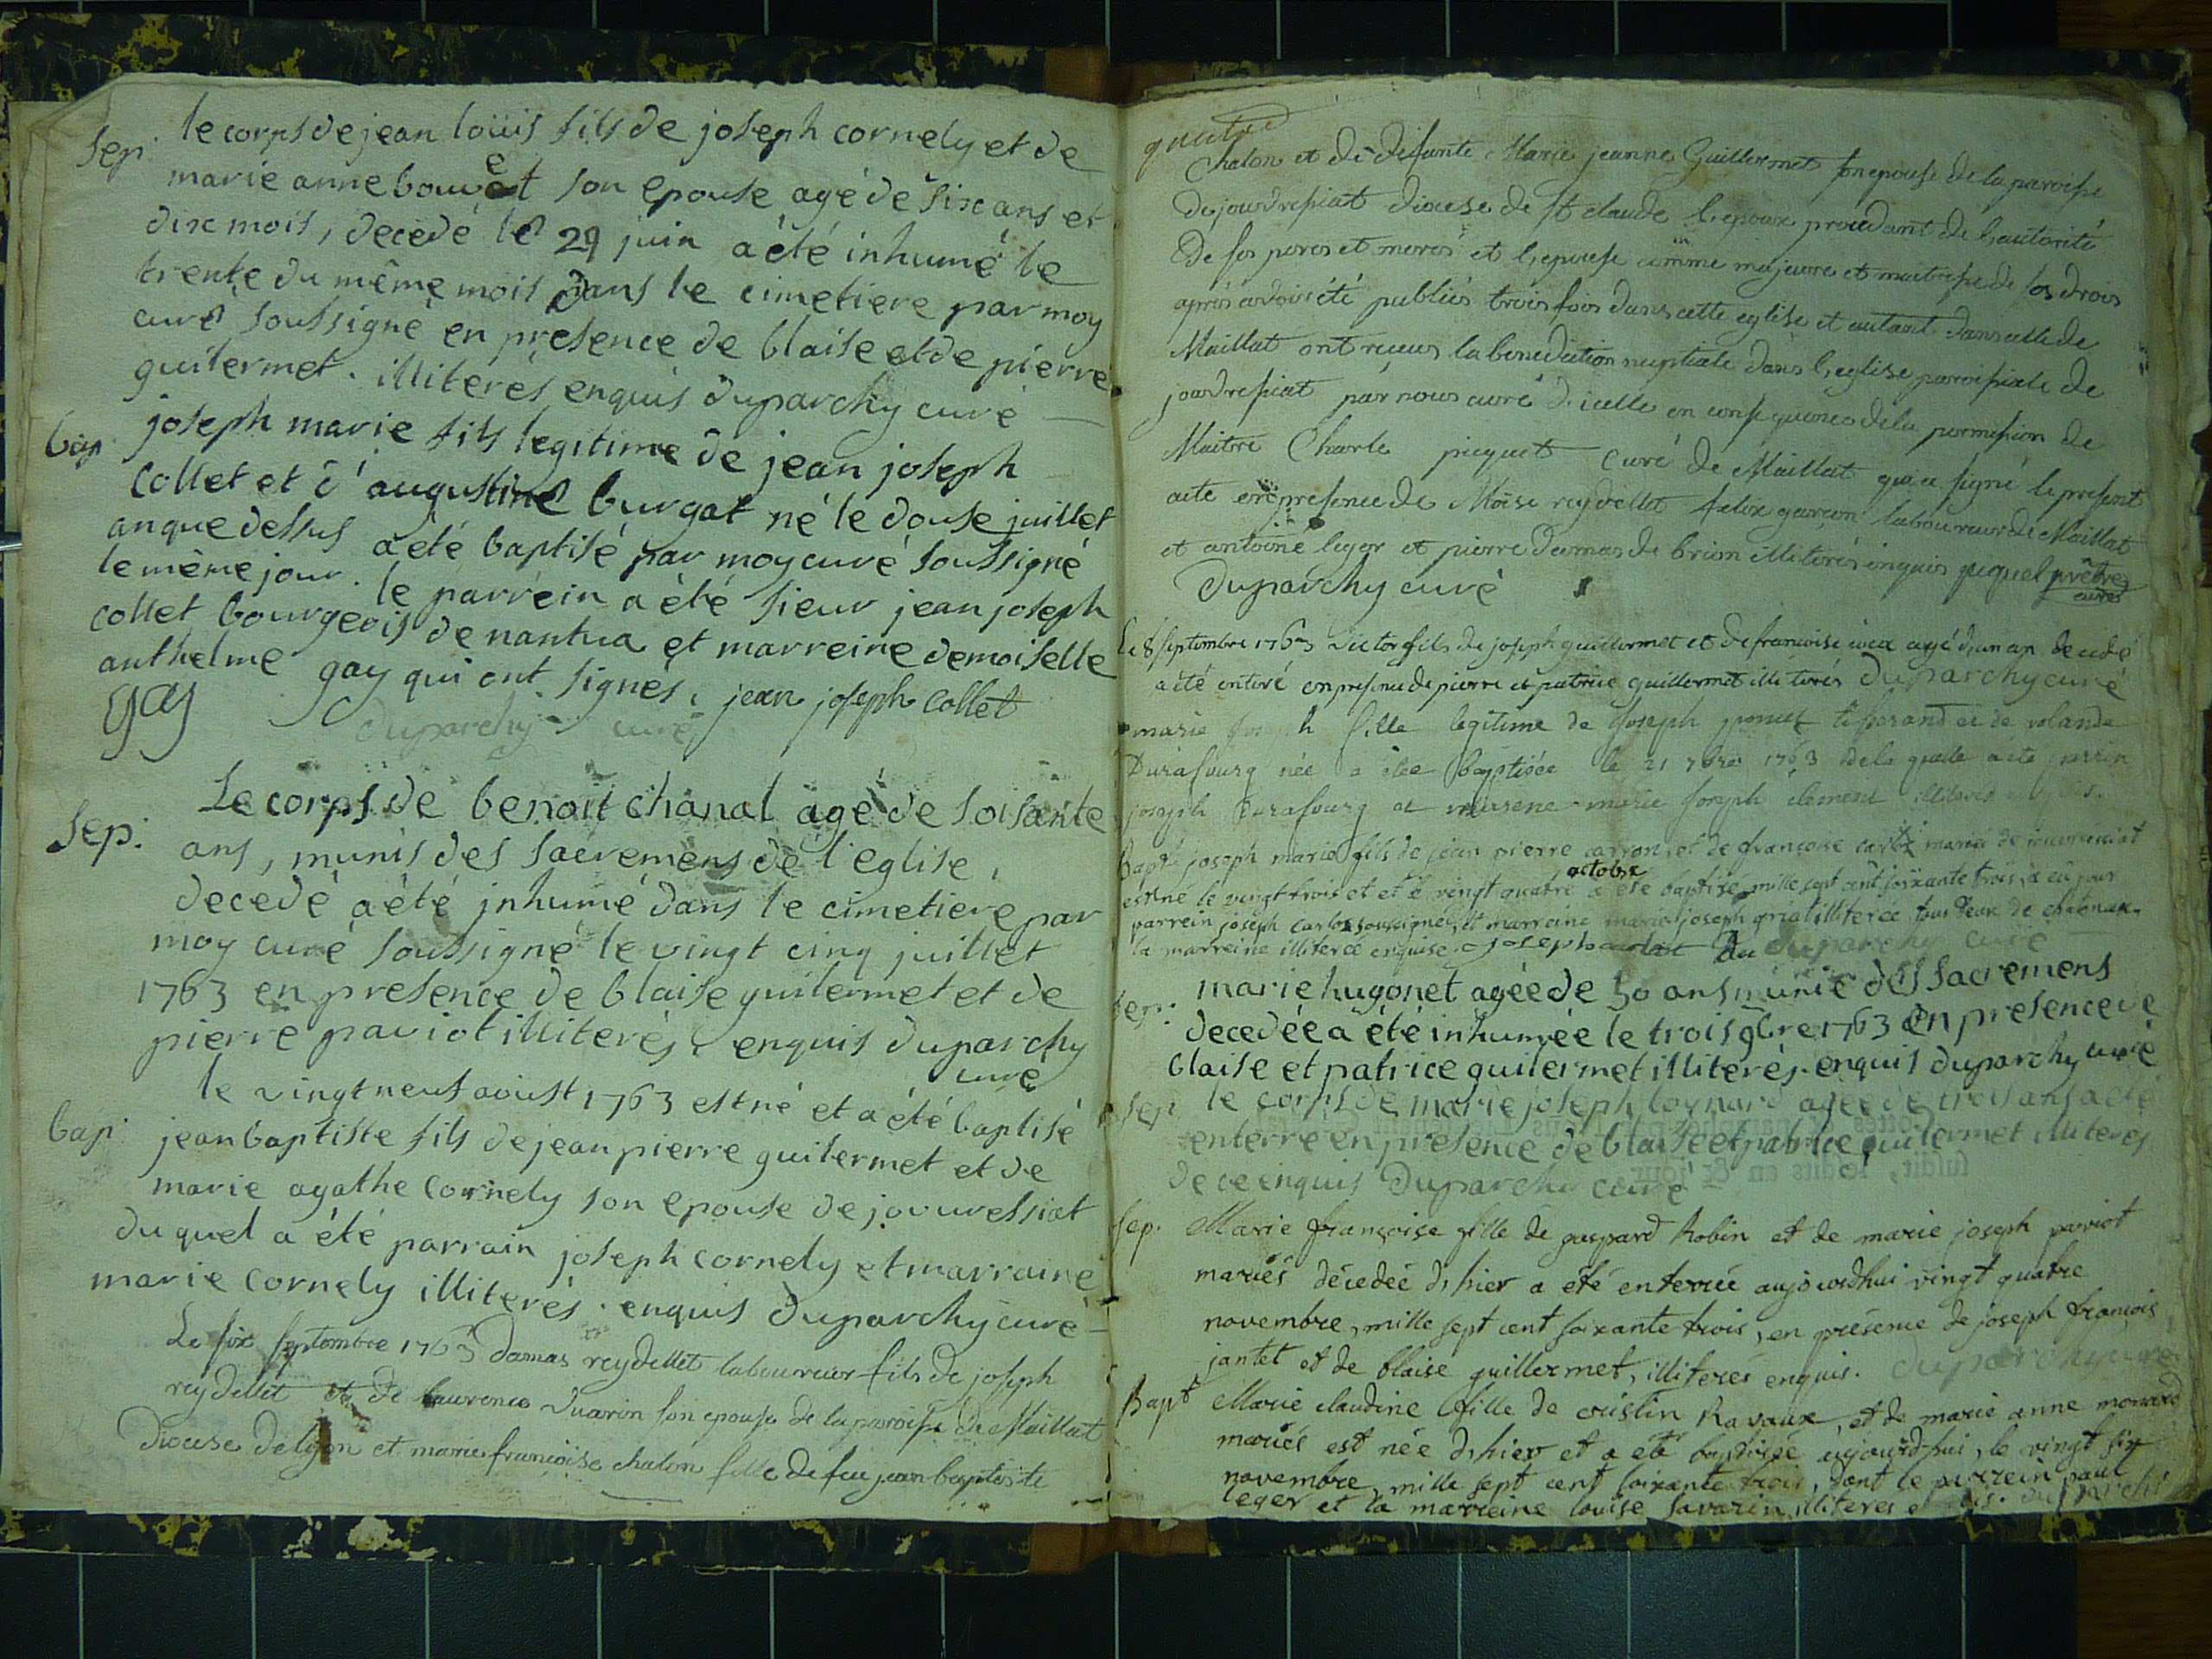 sep. le corps de jean loüis fils de joseph cornely et de
marie anne bouvet son epouse agé de six ans et
dix mois, decedé le 29 juin a été inhumé le
trente du même mois dans le cimetiere par moy
curé soussigné en presence de blaise et de pierre
guilermet. illiterés enquis duparchy curé
bap joseph marie fils legitime de jean joseph
collet et d'augustine burgat né le douse juillet
an que dessus a eté baptisé par moy curé soussigné
le même jour. le parrein a été sieur jean joseph
collet bourgeois de nantua et marreine demoiselle
anthelme gay qui ont signés, jean joseph Collet
gay
duparchy curé
Sep. Le corps de benoit chanal agé de soisante
ans, munis des sacremens de l'eglise,
decedé a été inhumé dans le cimetiere par
moy curé soussigné le vingt cinq juillet
1763 en presence de blaise guilermet et de
pierre paviot illiterés. enquis duparchy
curé
le vingt neuf aoust 1763 est né et a été baptisé
bap. jean baptiste fils de jean pierre guilermet et de
marie agathe cornely son epouse de jouvressiat
du quel a été parrain joseph cornely et marraine
marie cornely illiterés. enquis duparchy curé
Le six septembre 1763 damas reydellet laboureur fils de joseph
reydellet et de laurence Suarin son epouse de la paroisse de Maillat
Diocese de lyon et marie francoise chalon fille de feu jean baptiste
Chalon et de defunte Marie jeanne Guillermet son epouse de la paroisse
de jouvdressiat diocese de st claude l'epoux procedant de l'autorité
de ses peres et meres et l'epouse comme majeure et maitresse de ses drois
après avoir été publiés trois fois dans cette eglise et autant dans celle de
Maillat ont receus la benediction nuptiale dans l'eglise paroissiale de
jouvdressiat par nous curé d'icelle en consequence de la permission de
Maitre Charle piquet curé de Maillat qui a signé le present
acte en presence de Moise reydellet felix garçon laboureur de Maillat
et antoine leger et pierre damas de brion illiterés enquis piquet prêtre
curé
Duparchy curé
Le 8 septembre 1763 victor fils de joseph guillermet et de francoise agé d'un an decedé
a été enteré en presence de pierre et patrice guillermet illiterés Duparchy curé
marie joseph fille legitime de Joseph poncet tisserand et de rolande
Durafourg née a étee baptisée le 21 7bre 1763 de la quelle a été parrin
joseph Durafourg et marene marie Joseph clement illiteres
Bapt. joseph marie fils de jean pierre carron, et de françoise carlot mariés de
est né le vingt trois et et a vingt quatre octobre a été baptisé mille sept cent soixante trois, a eu pour
parrein joseph carlot soussigné, et marreine marie joseph griat illiterée, tous deux de chatonax.
la marreine illiterée enquise. joseph carlot duparchy curé
Sep. marie hugonet agée de 50 ans munie des sacremens
decedée a été inhumée le trois 9bre 1763 en presence de
blaise et patrice guilermet illiterés. enquis duparchy curé
Sep. le corps de marie joseph loynard agée de trois ans a eté
enterré en presence de blaise et patrice guilermet illiteres
de ce enquis Duparchy curé
Sep. Marie françoise fille de gaspard Robin et de marie joseph paviot
mariés décedée d'hier a été enterrée aujourdhui vingt quatre
novembre, mille sept cent soixante trois, en présence de joseph françois
jantet et de blaise guillermet, illiterés enquis. duparchy curé
Bapt Marie claudine fille de cristin Ravaux, et de marie anne monard
mariés est née d'hier et a eté baptisée aujourd'hui, le vingt six
novembre, mille sept cent soixante trois, dont le parrein paul
leger et la marreine louise savarin illiteres duparchi